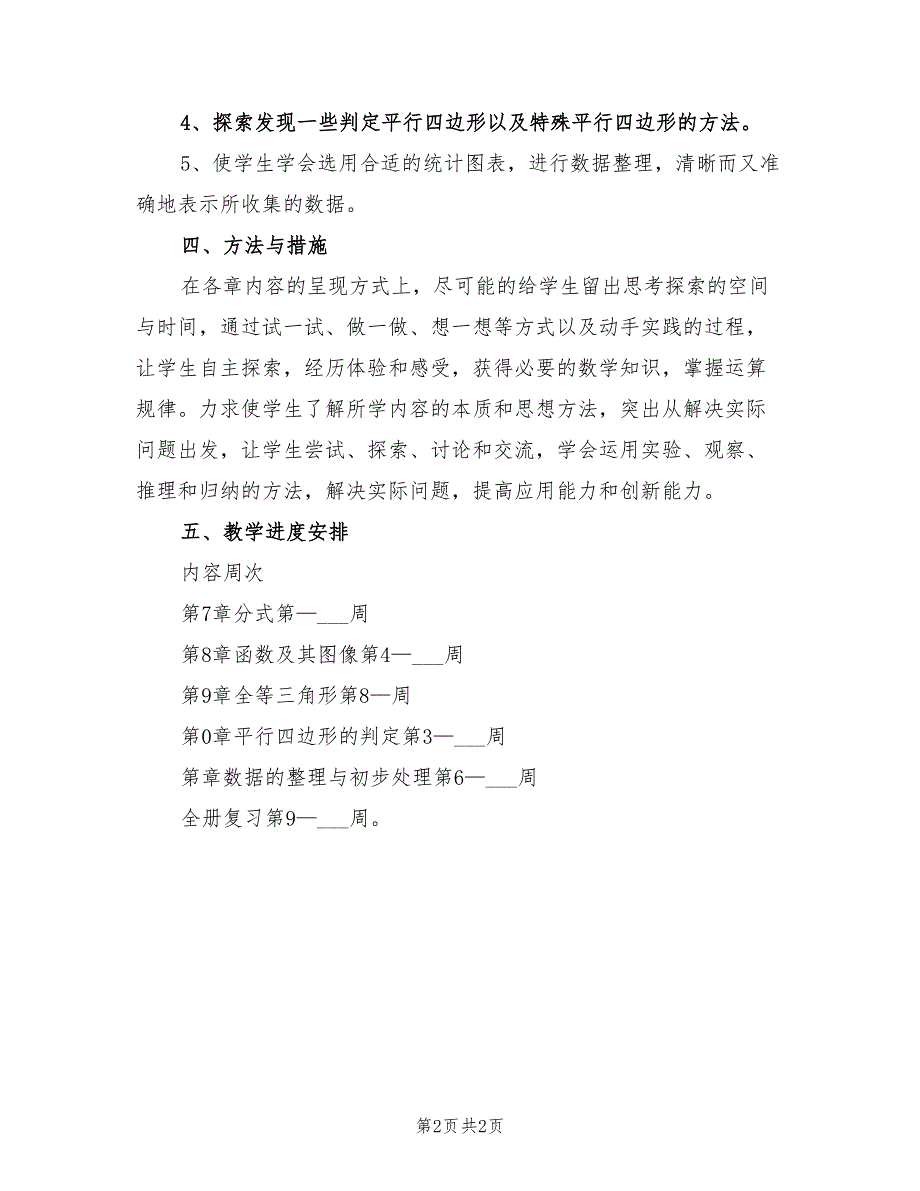 4、探索发现一些判定平行四边形以及特殊平行四边形的方法。
5、使学生学会选用合适的统计图表，进行数据整理，清晰而又准
确地表示所收集的数据。
四、方法与措施
在各章内容的呈现方式上，尽可能的给学生留出思考探索的空间
与时间，通过试一试、做一做、想一想等方式以及动手实践的过程，
让学生自主探索，经历体验和感受，获得必要的数学知识，掌握运算
规律。力求使学生了解所学内容的本质和思想方法，突出从解决实际
问题出发，让学生尝试、探索、讨论和交流，学会运用实验、观察、
推理和归纳的方法，解决实际问题，提高应用能力和创新能力。
五、教学进度安排
内容周次
第7章分式第—___周
第8章函数及其图像第4—___周
第9章全等三角形第8—周
第0章平行四边形的判定第3—___周
第章数据的整理与初步处理第6—___周
全册复习第9—___周。
第2页共2页